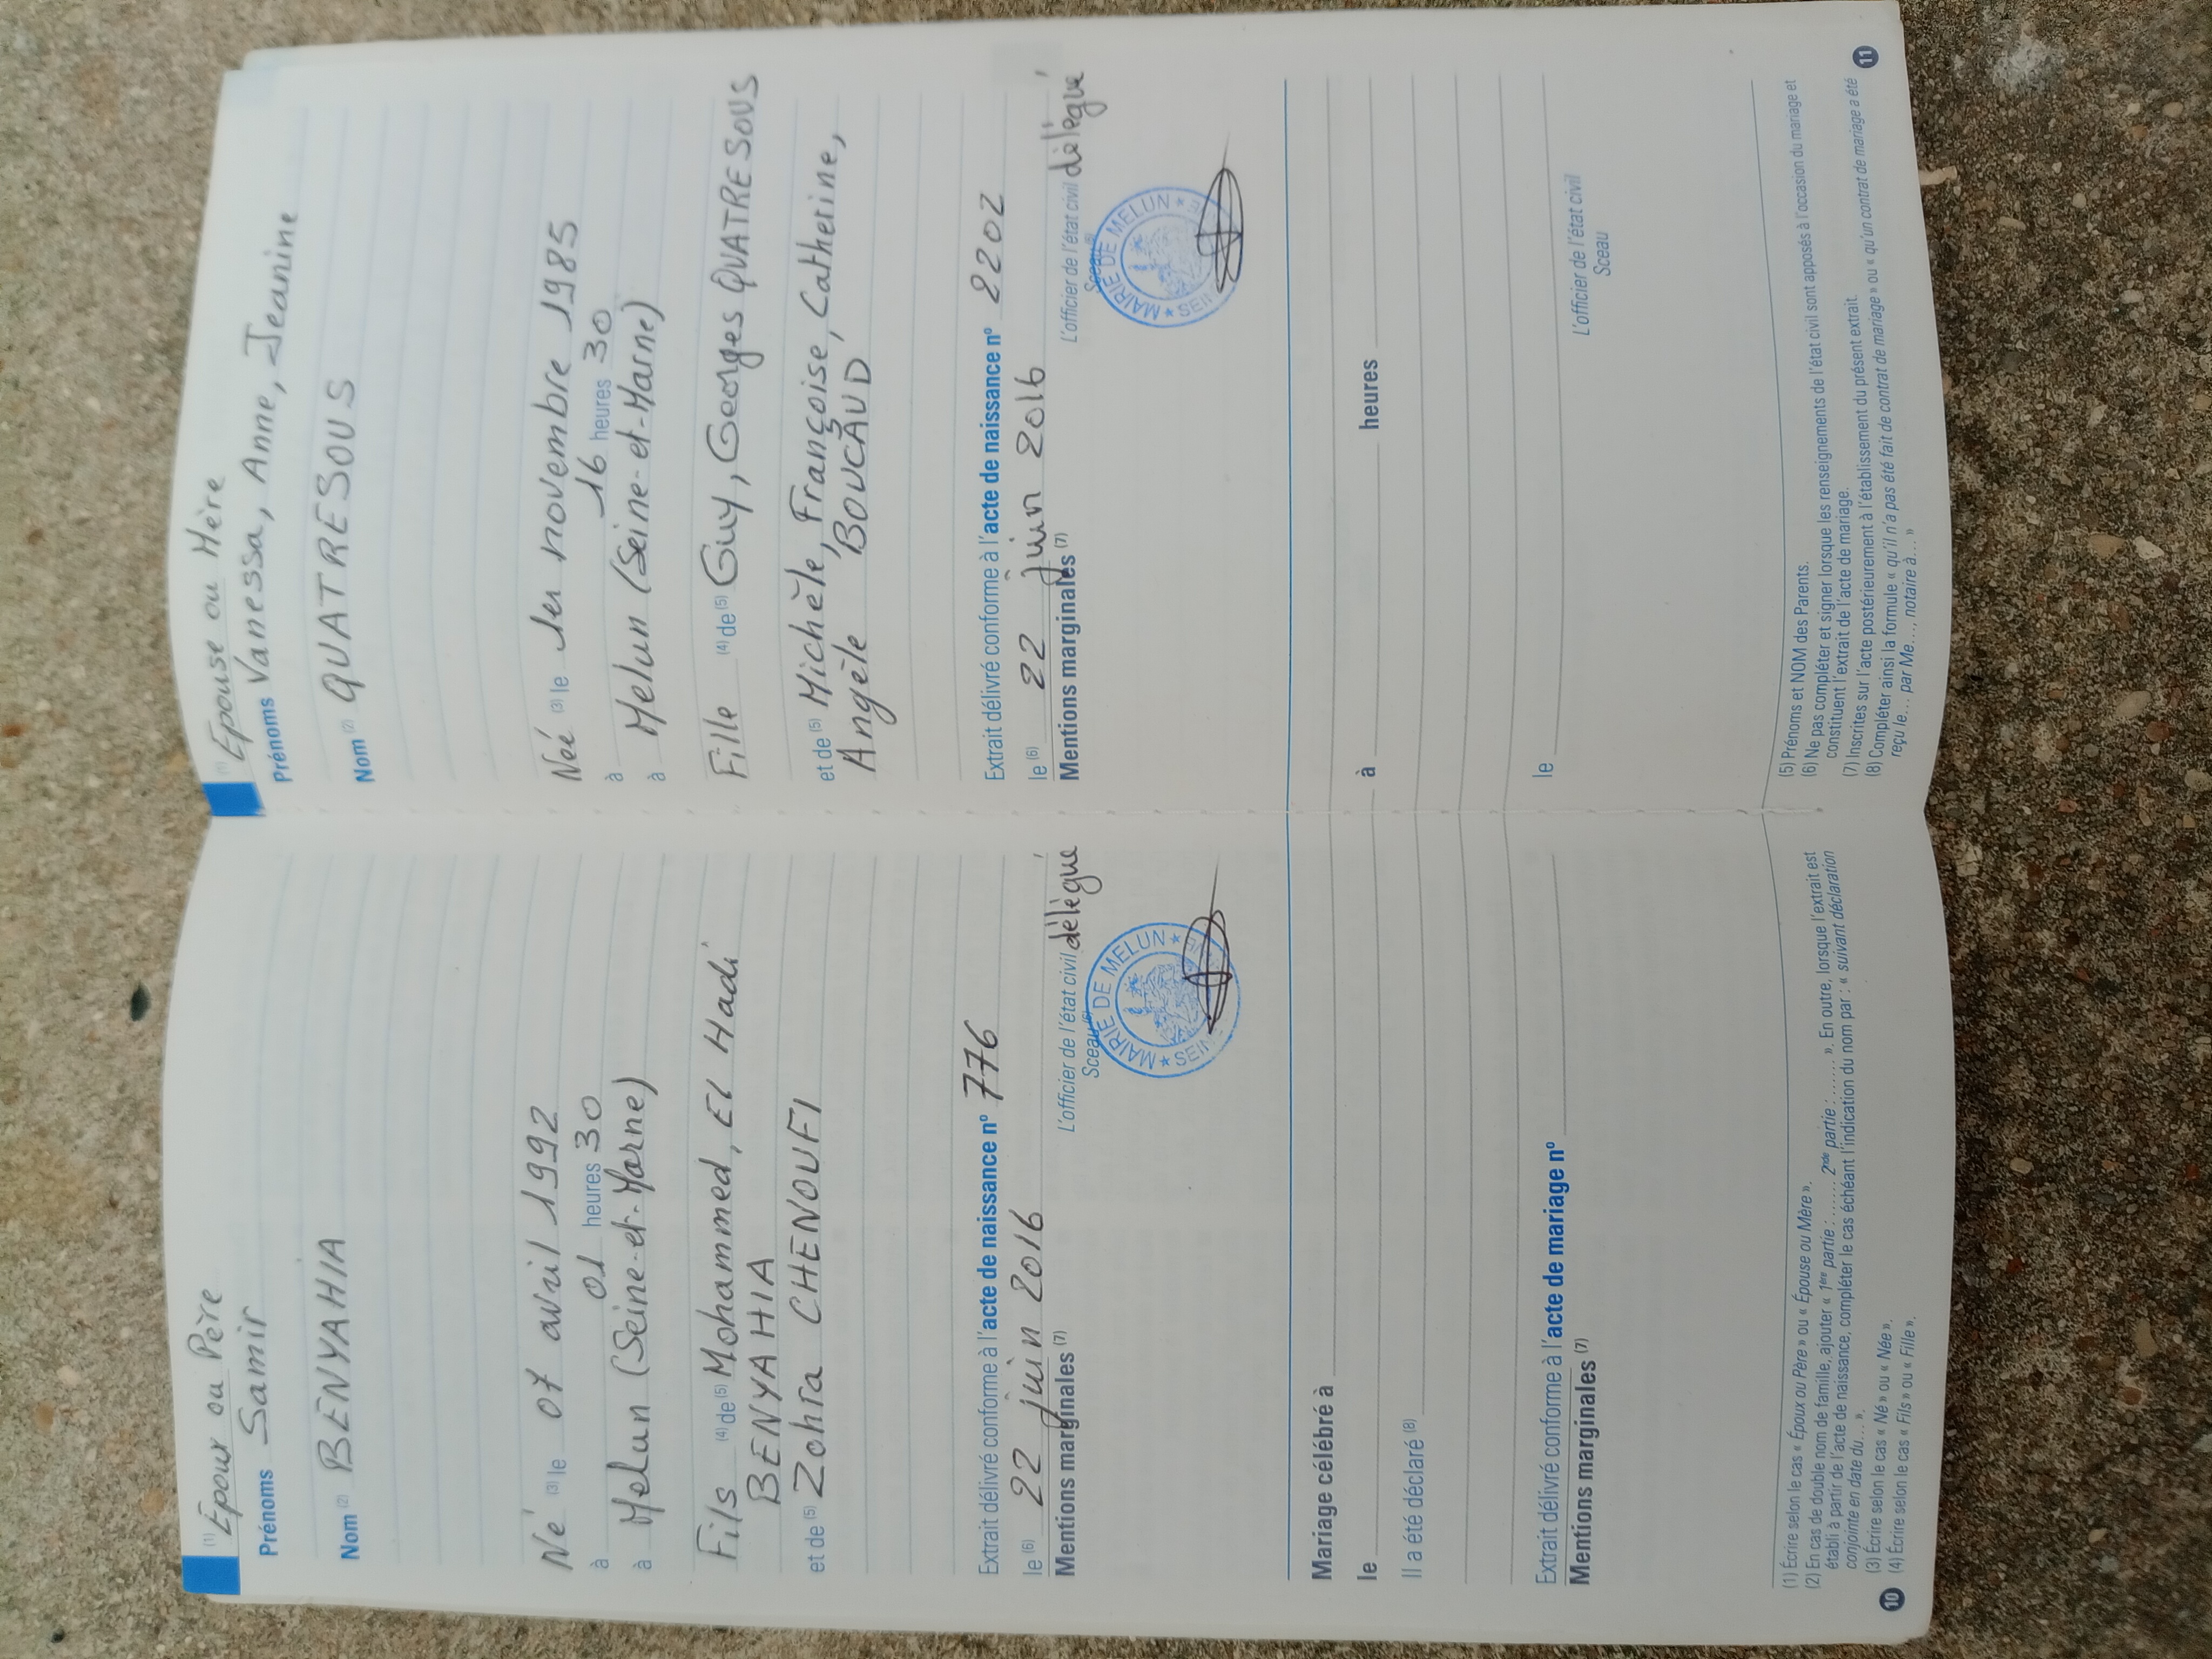 (1) Épour ou Père
Prénoms Samir
Nom (2) BENYAHIA
Né (3) le 07 avril 1992
à 01 heures 30
à Melun (Seine-et-Marne)
Fils (4) de (5) Mohammed, El Hadi
BENYAHIA
et de (5) Zohra CHENOUFI
Extrait délivré conforme à l'acte de naissance nº 776
le (6) 22 juin 2016
Mentions marginales (7)
L'officier de l'état civil délégué
Sceau (6)
MAIRIE DE MELUN
Mariage célébré à
le
Il a été déclaré (8)
Extrait délivré conforme à l'acte de mariage nº
Mentions marginales (7)
(1) Écrire selon le cas « Époux ou Père » ou « Épouse ou Mère ».
(2) En cas de double nom de famille, ajouter « 1ère partie : ....... 2nde partie : ....... ». En outre, lorsque l'extrait est
établi à partir de l'acte de naissance, compléter le cas échéant l'indication du nom par : « suivant déclaration
conjointe en date du... ».
(3) Écrire selon le cas « Né » ou « Née ».
(4) Écrire selon le cas « Fils » ou « Fille ».
10
(1) Epouse ou Mère
Prénoms Vanessa, Anne, Jeanine
Nom (2) QUATRESOUS
Née (3) le 1er novembre 1985
à 16 heures 30
à Melun (Seine-et-Marne)
Fille (4) de (5) Guy, Georges QUATRESOUS
et de (5) Michèle, Françoise, Catherine,
Angèle BOUCAUD
Extrait délivré conforme à l'acte de naissance nº 2202
le (6) 22 juin 2016
Mentions marginales (7)
L'officier de l'état civil délégué
Sceau (6)
MAIRIE DE MELUN
à heures
le
L'officier de l'état civil
Sceau
(5) Prénoms et NOM des Parents.
(6) Ne pas compléter et signer lorsque les renseignements de l'état civil sont apposés à l'occasion du mariage et
constituent l'extrait de l'acte de mariage.
(7) Inscrites sur l'acte postérieurement à l'établissement du présent extrait.
(8) Compléter ainsi la formule « qu'il n'a pas été fait de contrat de mariage » ou « qu'un contrat de mariage a été
reçu le... par Me...., notaire à... »
11